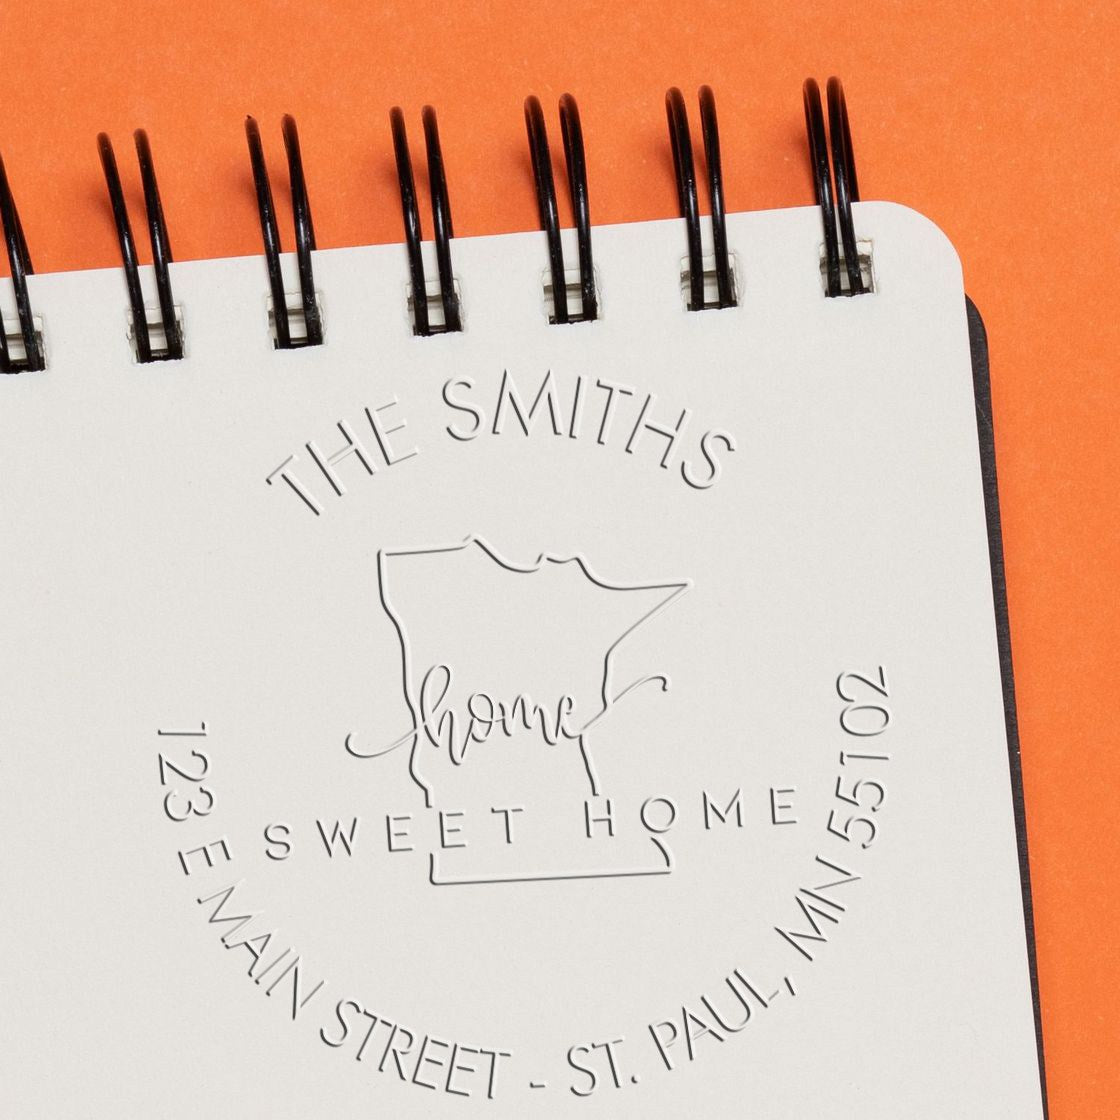 THE SMITHS
home
SWEET HOME
123 E MAIN STREET - ST. PAUL, MN 55102